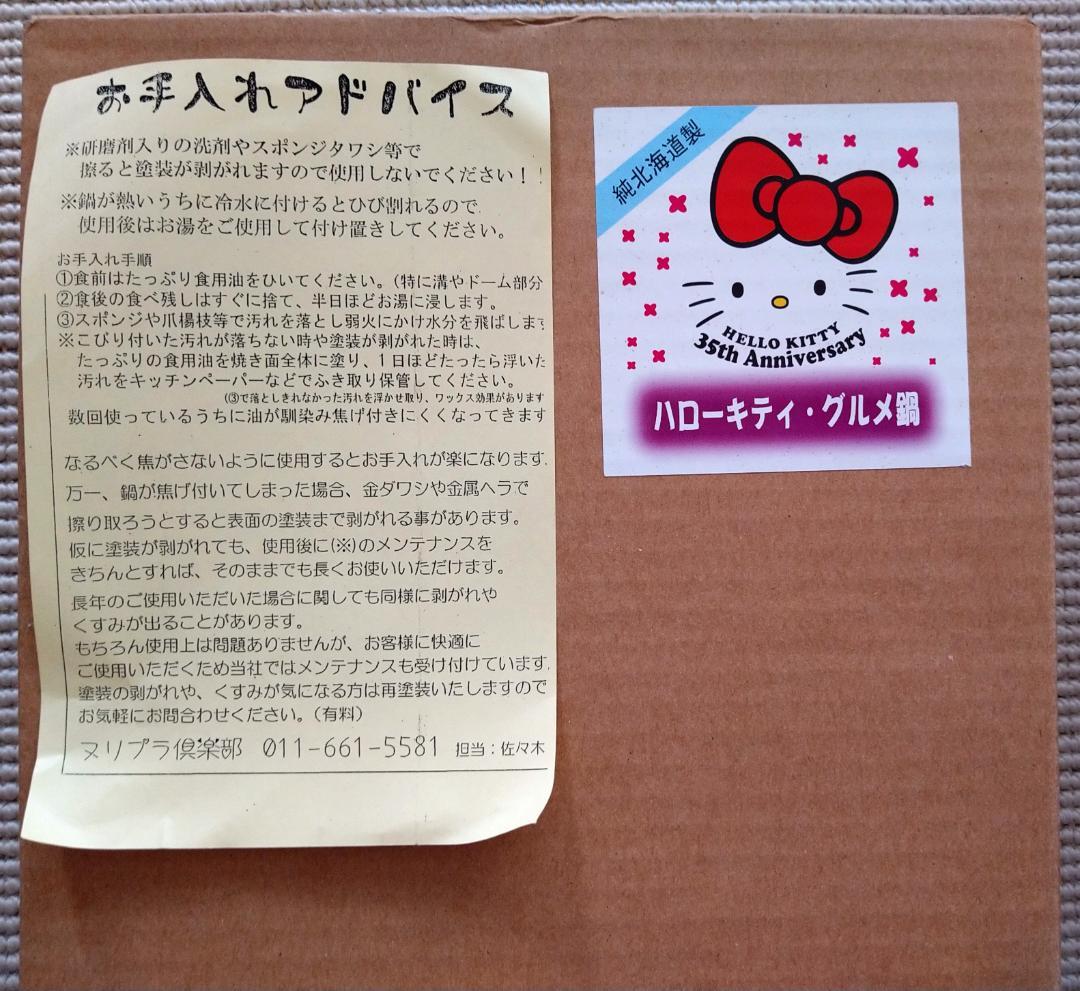 お手入れアドバイス
※研磨剤入りの洗剤やスポンジタワシ等で
擦ると塗装が剥がれますので使用しないでください！！
※鍋が熱いうちに冷水に付けるとひび割れるので
使用後はお湯をご使用して付け置きしてください。
お手入れ手順
①食前はたっぷり食用油をひいてください。(特に溝やドーム部分
②食後の食べ残しはすぐに捨て、半日ほどお湯に浸します。
③スポンジや爪楊枝等で汚れを落とし弱火にかけ水分を飛ばします
※こびり付いた汚れが落ちない時や塗装が剥がれた時は、
たっぷりの食用油を焼き面全体に塗り、１日ほどたったら浮いた
汚れをキッチンペーパーなどでふき取り保管してください。
(③で落としきれなかった汚れを浮かせ取り、ワックス効果があります
数回使っているうちに油が馴染み焦げ付きにくくなってきます
なるべく焦がさないように使用するとお手入れが楽になります.
万一、鍋が焦げ付いてしまった場合、金ダワシや金属ヘラで
擦り取ろうとすると表面の塗装まで剥がれる事があります。
仮に塗装が剥がれても、使用後に(※)のメンテナンスを
きちんとすれば、そのままでも長くお使いいただけます。
長年のご使用いただいた場合に関しても同様に剥がれや
くすみが出ることがあります。
もちろん使用上は問題ありませんが、お客様に快適に
ご使用いただくため当社ではメンテナンスも受け付けています.
塗装の剥がれや、くすみが気になる方は再塗装いたしますので
お気軽にお問合わせください。(有料)
ヌリプラ倶楽部 011-661-5581 担当：佐々木
純北海道製
HELLO KITTY
35th Anniversary
ハローキティ・グルメ鍋